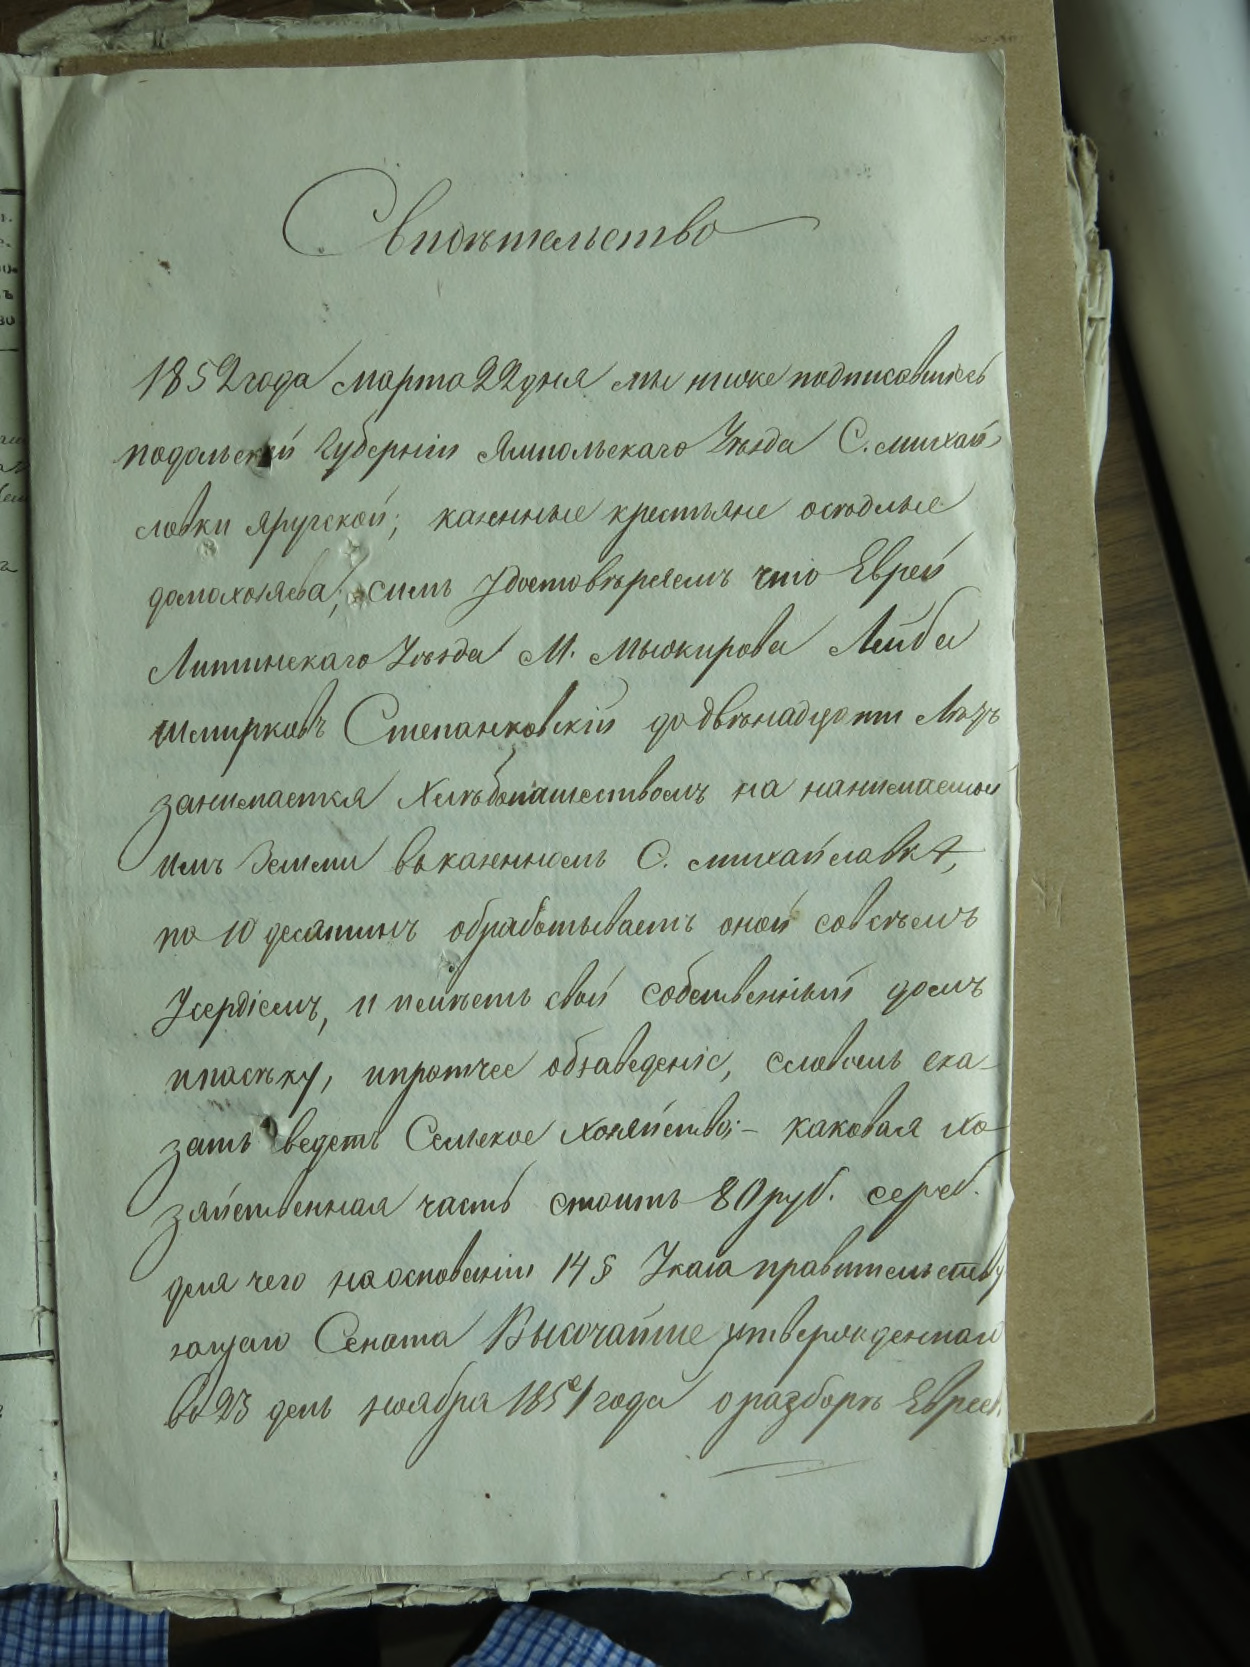 Свидѣтельство
1852 года марта 22 дня мы ниже подписавшiесь
подольской Губернiи Ямпольскаго Уѣзда С. михай
ловки яругской; казенные крестьяне осѣдлые
домохозяева; симъ Удостовѣряемъ что Еврей
Литинскаго Уѣзда М. Межирова Лейба
Шмирковъ Степанковскiй до двѣнадцати Лѣтъ
занимается Хлѣбопашествомъ на нанимаемой
имъ Земли въ казенномъ С. михайлавкѣ,
по 10 десятинъ обрабатываетъ оной совсѣмъ
Усердiемъ, и имѣетъ свой собственный домъ
ипасѣку, ипротчее обзаведенiе, словомъ ска-
зать ведетъ Сельское Хозяйство; – каковая хо
зяйственная часть стоитъ 80 руб. сереб.
для чего на основанiи 14 § Указа правительству
ющаго Сената Высочайше утвержденнаго
въ 23 день ноября 1851 года о разборѣ Евреев